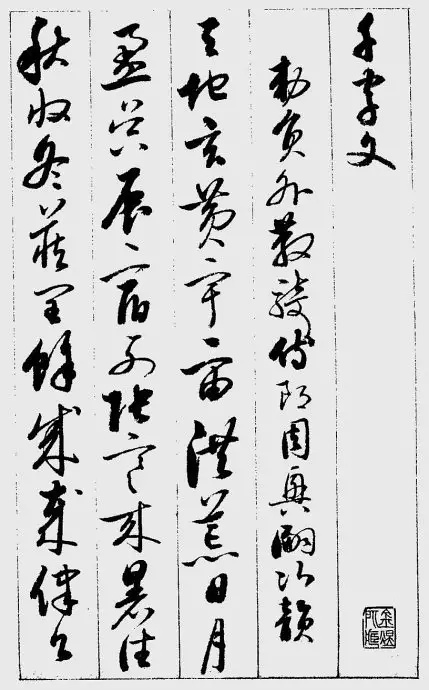 千字文
勅員外散騎侍郎周興嗣次韻
天地玄黃宇宙洪荒日月
盈昃辰宿列張寒来暑往
秋收冬藏閏餘成歲律吕